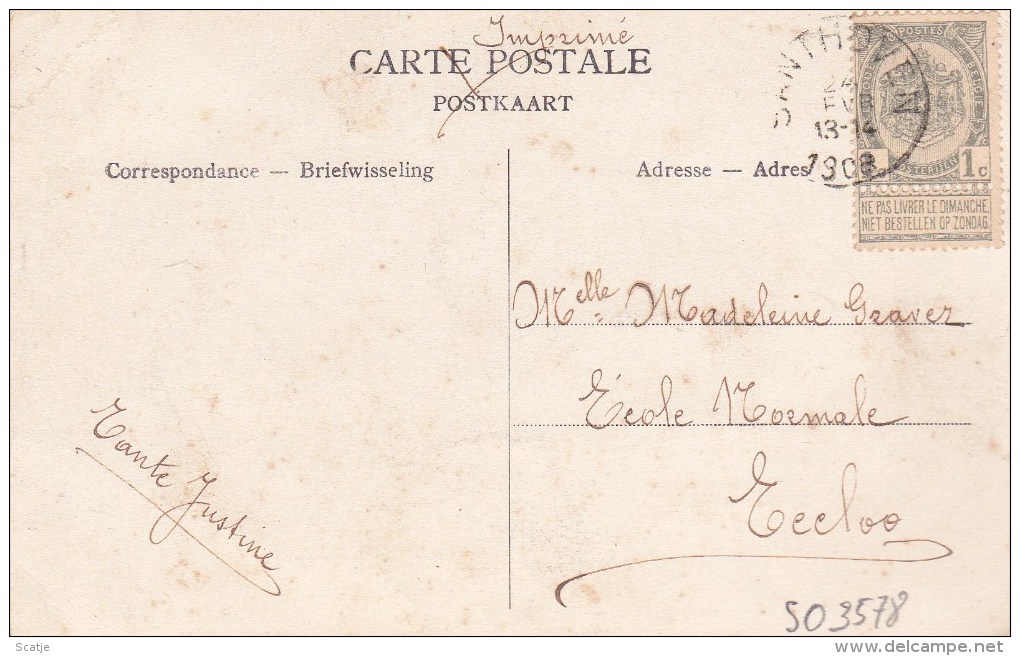 Imprimé
CARTE POSTALE
POSTKAART
SANTHOVEN
24
FEVR
13-14
1908
POSTES
1c
NE PAS LIVRER LE DIMANCHE
NIET BESTELLEN OP ZONDAG
Correspondance — Briefwisseling
Adresse — Adres
Melle Madeleine Gravez
École Normale
Eecloo
Tante Justine
SO 3578
Scatje
delcampe.net